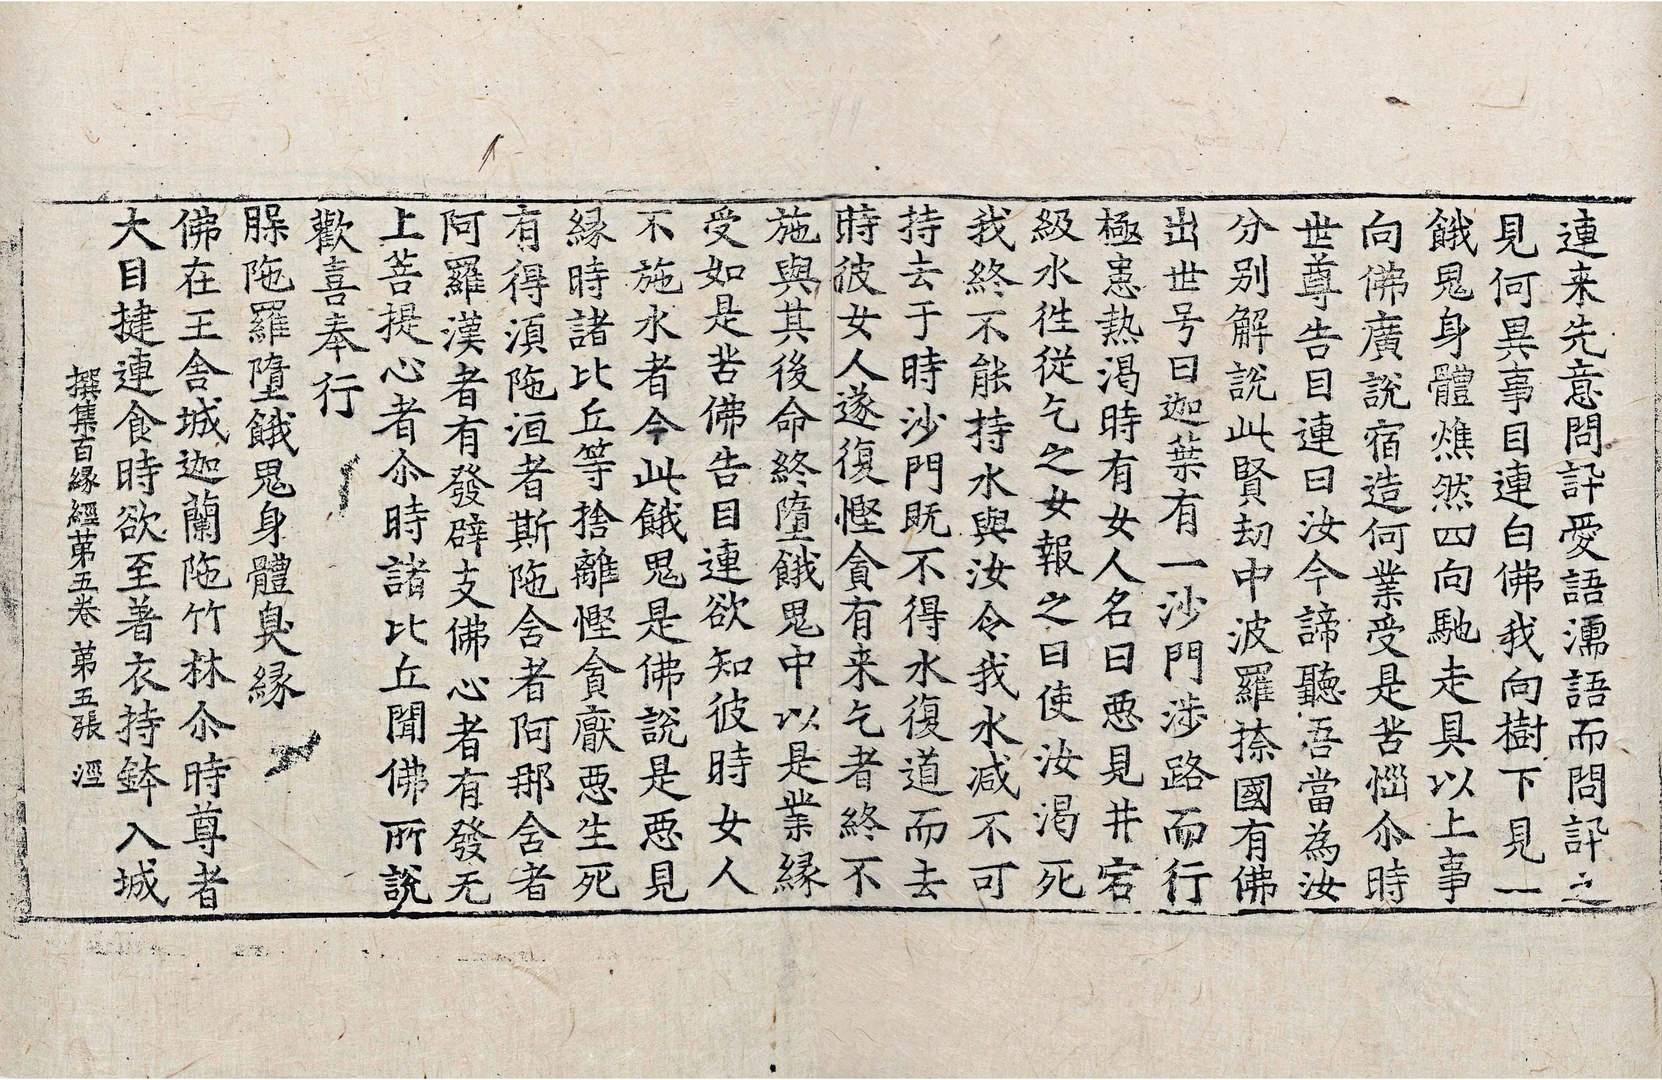 連来先意問訊愛語濡語而問訊之
見何異事目連白佛我向樹下見一
餓鬼身體燋然四向馳走具以上事
向佛廣說宿造何業受是苦惱尒時
世尊告目連曰汝今諦聽吾當為汝
分別解說此賢劫中波羅㮈國有佛
出世号曰迦葉有一沙門涉路而行
極患熱渴時有女人名曰惡見井宕
級水徃從乞之女報之曰使汝渴死
我終不能持水與汝令我水减不可
持去于時沙門既不得水復道而去
時彼女人遂復慳貪有来乞者終不
施與其後命終墮餓鬼中以是業緣
受如是苦佛告目連欲知彼時女人
不施水者今此餓鬼是佛說是惡見
緣時諸比丘等捨離慳貪厭惡生死
有得湏陁洹者斯陁含者阿那含者
阿羅漢者有發辟支佛心者有發无
上菩提心者尒時諸比丘聞佛所說
歡喜奉行
𦝨陁羅墮餓鬼身體臭緣
佛在王舍城迦蘭陁竹林尒時尊者
大目揵連食時欲至著衣持鉢入城
撰集百緣經第五卷 第五張 淫